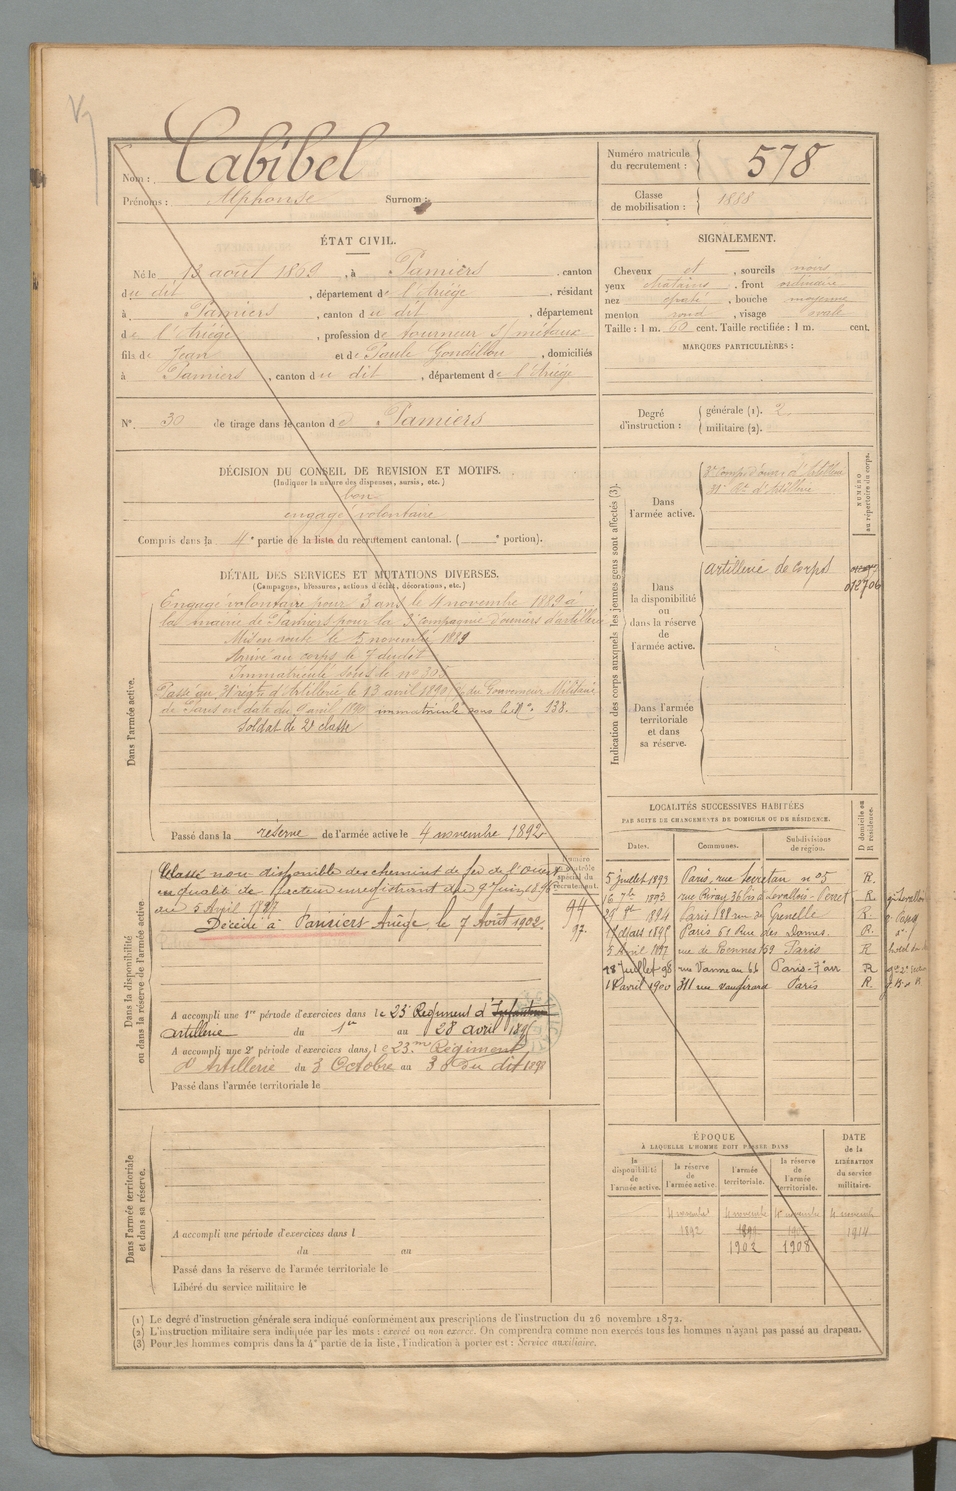 Nom : Cabibel
Prénoms : Alphonse Surnom :
Numéro matricule du recrutement : 578
Classe de mobilisation : 1888
ÉTAT CIVIL.
Né le 13 août 1869, à Pamiers, canton
du dit, département de l'Ariège, résidant
à Pamiers, canton du dit, département
de l'Ariège, profession de tourneur s/ métaux
fils de Jean et de Paule Gondillou, domiciliés
à Pamiers, canton du dit, département de l'Ariège
N°. 30 de tirage dans le canton de Pamiers
SIGNALEMENT.
Cheveux et, sourcils noirs
yeux chatains, front ordinaire
nez épaté, bouche moyenne
menton rond, visage ovale
Taille : 1 m. 60 cent. Taille rectifiée : 1 m. cent.
MARQUES PARTICULIÈRES :
Degré d'instruction : générale (1). 2
militaire (2).
DÉCISION DU CONSEIL DE REVISION ET MOTIFS.
(Indiquer la nature des dispenses, sursis, etc.)
bon
engagé volontaire
Compris dans la 4e partie de la liste du recrutement cantonal. ( e portion).
DÉTAIL DES SERVICES ET MUTATIONS DIVERSES.
(Campagnes, blessures, actions d'éclat, décorations, etc.)
Dans l'armée active.
Engagé volontaire pour 3 ans le 4 novembre 1889 à
la mairie de Pamiers pour la 3e compagnie d'ouvriers d'artillerie
Mis en route le 5 novembre 1889
Arrivé au corps le 7 du dit
Immatriculé sous le no 305
Passé au 31e régt d'Artillerie le 13 avril 1890 du Gouverneur Militaire
de Paris en date du 9 avril 1890 immatriculé sous le No 138.
Soldat de 2e classe
Passé dans la réserve de l'armée active le 4 novembre 1892
Indication des corps auxquels les jeunes gens sont affectés (3).
NUMÉRO au répertoire du corps.
Dans l'armée active.
3e Comp. d'ouvriers d'Artillerie
31e Rt d'Artillerie
Dans la disponibilité ou dans la réserve de l'armée active.
artillerie de corps
012706
Dans l'armée territoriale et dans sa réserve.
Dans la disponibilité ou dans la réserve de l'armée active.
Numéro au contrôle spécial du recrutement.
Classé non disponible des chemins de fer de l'ouest
en qualité de facteur enregistrant du 9 Juin 1896
au 5 Avril 1897
94
97.
Décédé à Pamiers Ariège, le 7 Août 1902.
A accompli une 1re période d'exercices dans le 23e Régiment d'Infanterie
artillerie du 1er au 28 avril
A accompli une 2e période d'exercices dans le 23me Régiment
d'Artillerie du 3 Octobre au 30 du dit 1898
Passé dans l'armée territoriale le
LOCALITÉS SUCCESSIVES HABITÉES
PAR SUITE DE CHANGEMENTS DE DOMICILE OU DE RÉSIDENCE.
D domicile ou R résidence.
Dates. Communes. Subdivisions de région.
5 juillet 1893 Paris, rue Secretan no 5 R.
16 7bre 1893 rue Rivay 36 bis à Levallois-Perret R.
1894 Paris 128 rue de Grenelle R.
Mars 1895 Paris 61 Rue des Dames. R.
5 Avril 1897 rue de Rennes 159 Paris R
18 Juillet 98 rue Vanneau 66 Paris-7e arr R
18 avril 1900 311 rue Vaugirard Paris R.
Dans l'armée territoriale et dans sa réserve.
A accompli une période d'exercices dans l
du au
Passé dans la réserve de l'armée territoriale le
Libéré du service militaire le
ÉPOQUE
À LAQUELLE L'HOMME DOIT PASSER DANS
DATE de la LIBÉRATION du service militaire.
la disponibilité de l'armée active. la réserve de l'armée active. l'armée territoriale. la réserve de l'armée territoriale.
4 novembre 4 novembre 4 novembre 4 novembre
1892 1914
1902 1908
(1) Le degré d'instruction générale sera indiqué conformément aux prescriptions de l'instruction du 26 novembre 1872.
(2) L'instruction militaire sera indiquée par les mots : exercé ou non exercé. On comprendra comme non exercés tous les hommes n'ayant pas passé au drapeau.
(3) Pour les hommes compris dans la 4e partie de la liste, l'indication à porter est : Service auxiliaire.